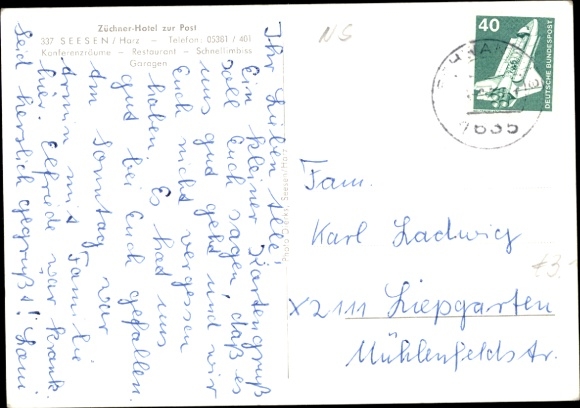 Züchner-Hotel zur Post
337 SEESEN/Harz - Telefon: 05381 / 401
Konferenzräume - Restaurant - Schnellimbiss
Garagen
Ihr Lieben alle!
Ein kleiner Kartengruß
soll Euch sagen, daß es
uns gut geht und wir
Euch nicht vergessen
haben. Es hat uns
gut bei Euch gefallen.
Am Sonntag war
Armin mit Familie
hier. Elfriede war krank.
Seid herzlich gegrüßt!
Seesen/Harz
NS
40
DEUTSCHE BUNDESPOST
Fam.
Karl Ladwig
X2111 Liepgarten
Mühlenfeldstr.